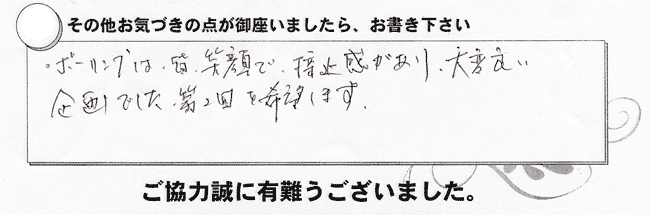 その他お気づきの点が御座いましたら、お書き下さい
・ボーリングは、皆、笑顔で、接近感があり、大変良い
企画でした。第2回を希望します。
ご協力誠に有難うございました。